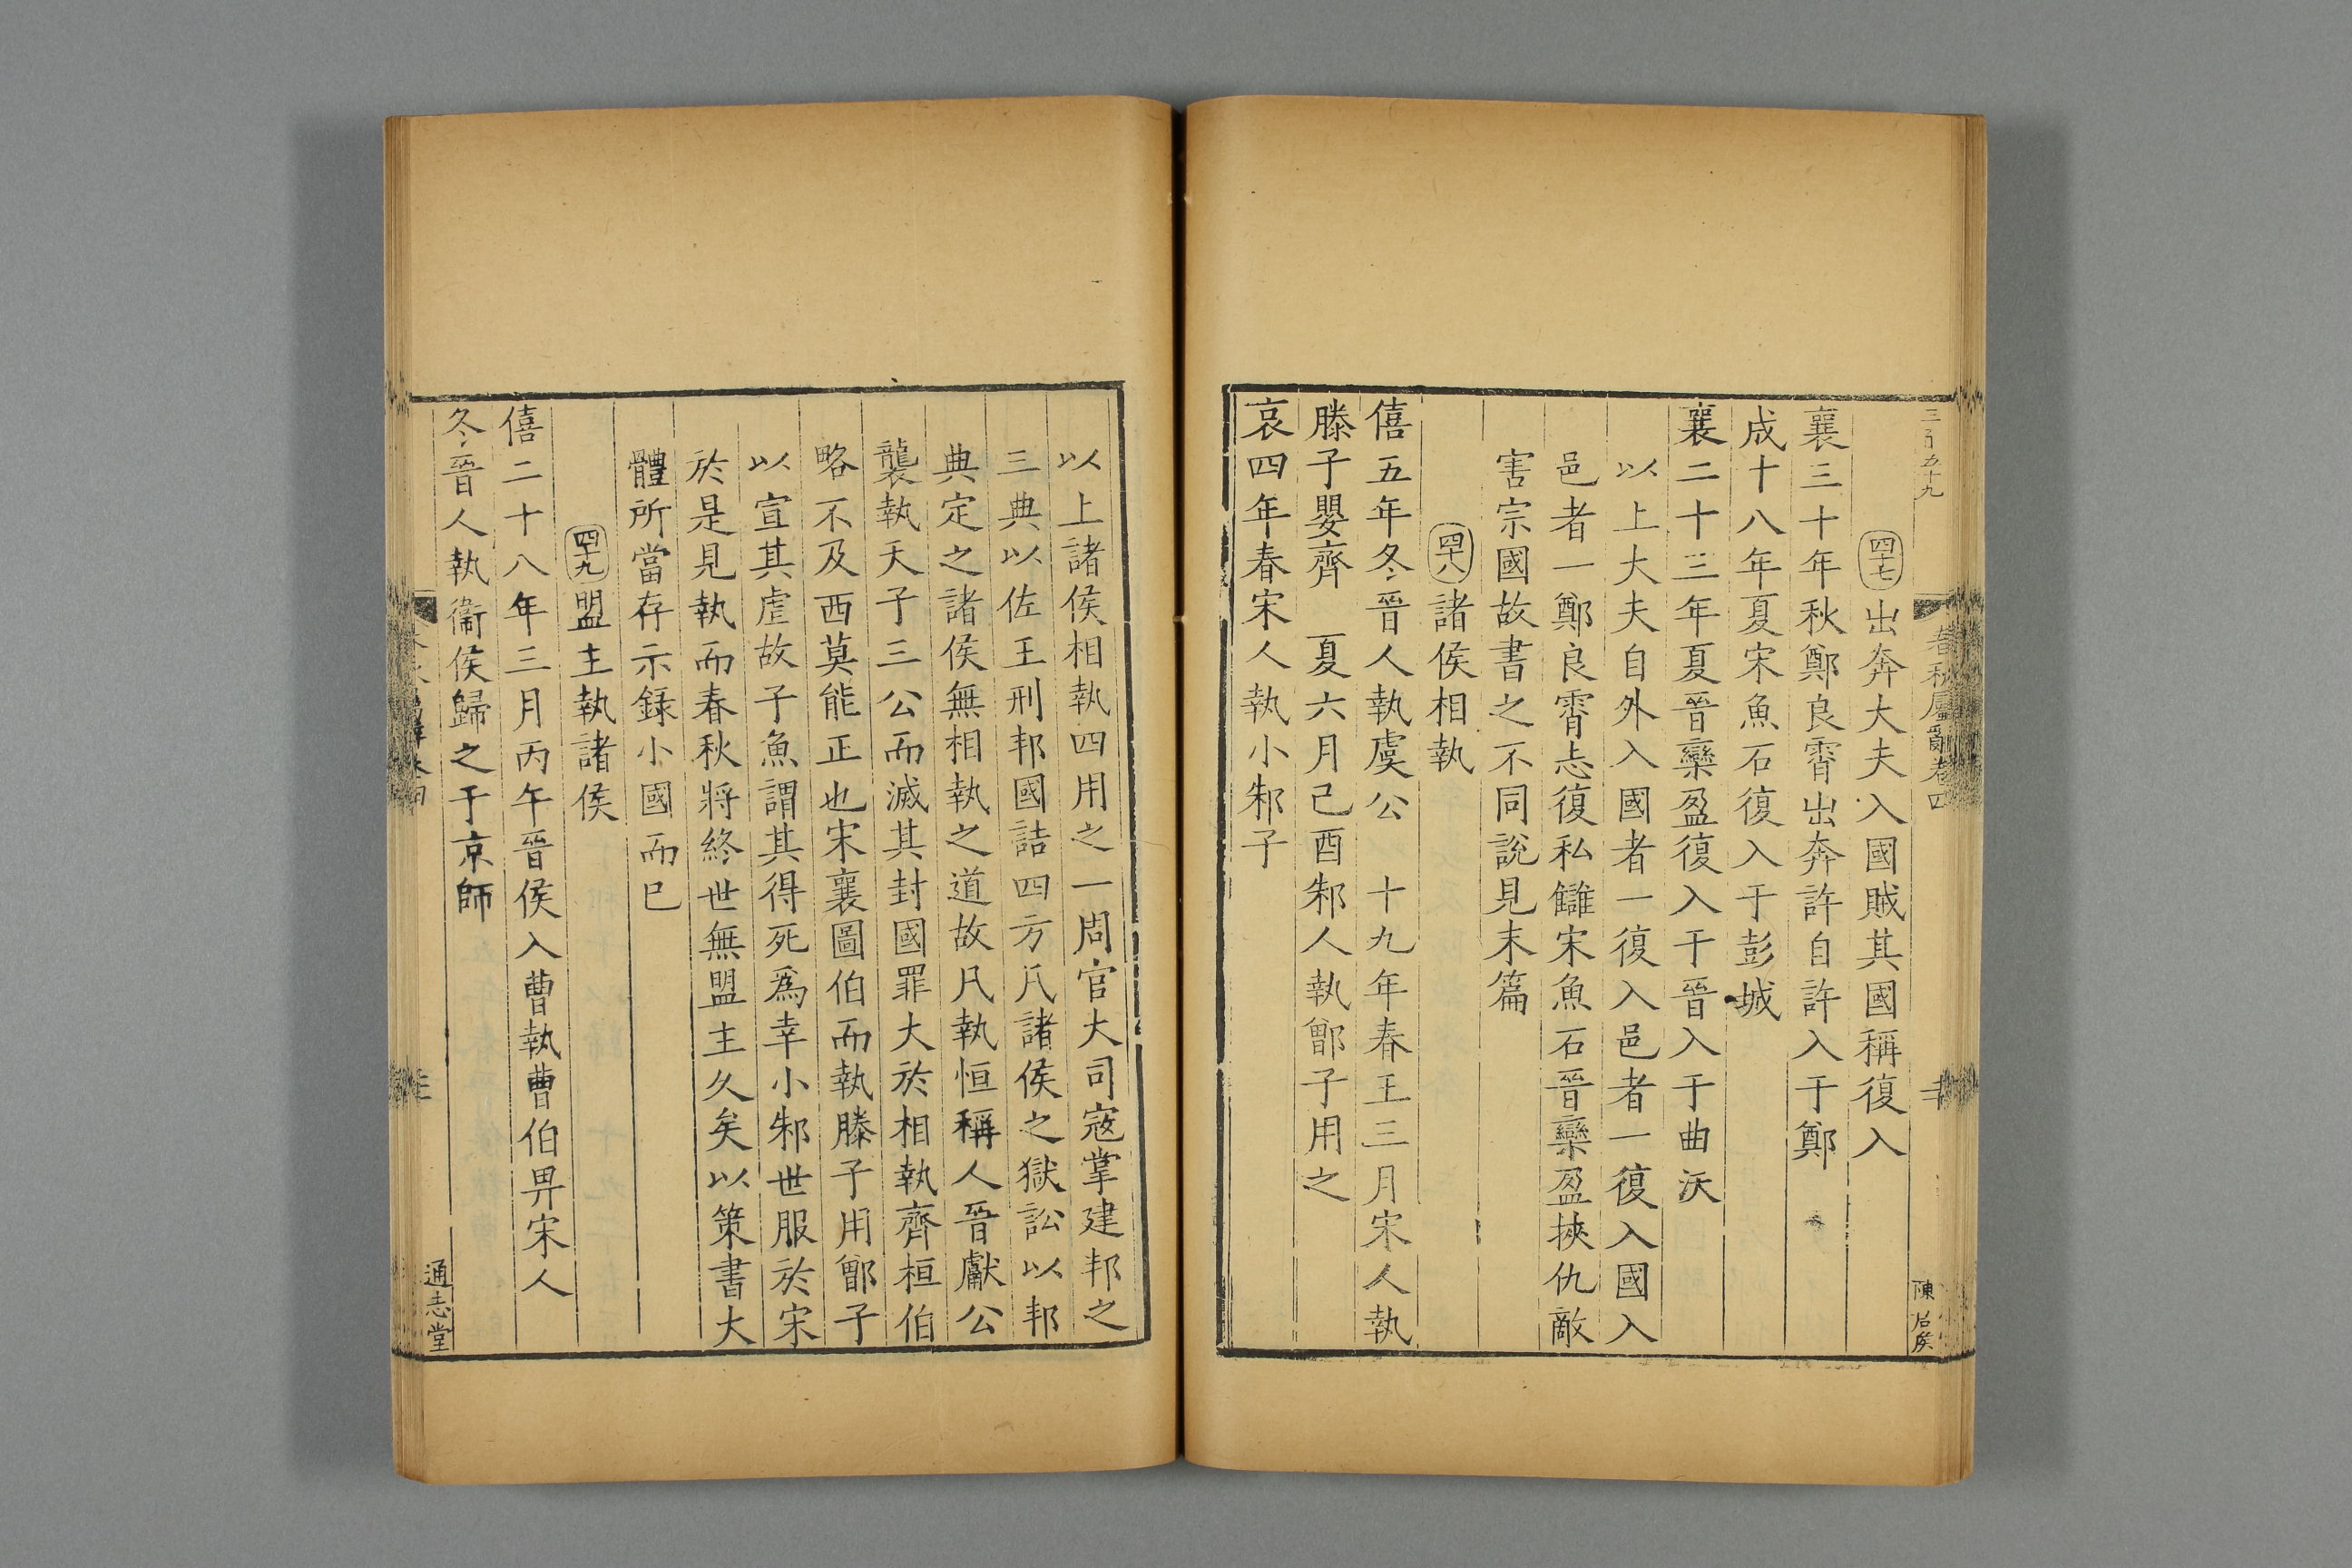 四十七出奔大夫入國賊其國稱復入
襄三十年秋鄭良霄出奔許自許入于鄭
成十八年夏宋魚石復入于彭城
襄二十三年夏晉欒盈復入于晉入于曲沃
以上大夫自外入國者一復入邑者一復入國入
邑者一鄭良霄志復私讎宋魚石晉欒盈挾仇敵
害宗國故書之不同說見末篇
四十八諸侯相執
僖五年冬晉人執虞公 十九年春王三月宋人執
滕子嬰齊 夏六月己酉邾人執鄫子用之
哀四年春宋人執小邾子
春秋屬辭卷四
以上諸侯相執四用之一周官大司寇掌建邦之
三典以佐王刑邦國詰四方凡諸侯之獄訟以邦
典定之諸侯無相執之道故凡執恒稱人晉獻公
襲執天子三公而滅其封國罪大於相執齊桓伯
略不及西莫能正也宋襄圖伯而執滕子用鄫子
以宣其虐故子魚謂其得死爲幸小邾世服於宋
於是見執而春秋將終世無盟主久矣以策書大
體所當存示録小國而已
四十九盟主執諸侯
僖二十八年三月丙午晉侯入曹執曹伯畀宋人
冬晉人執衞侯歸之于京師
通志堂